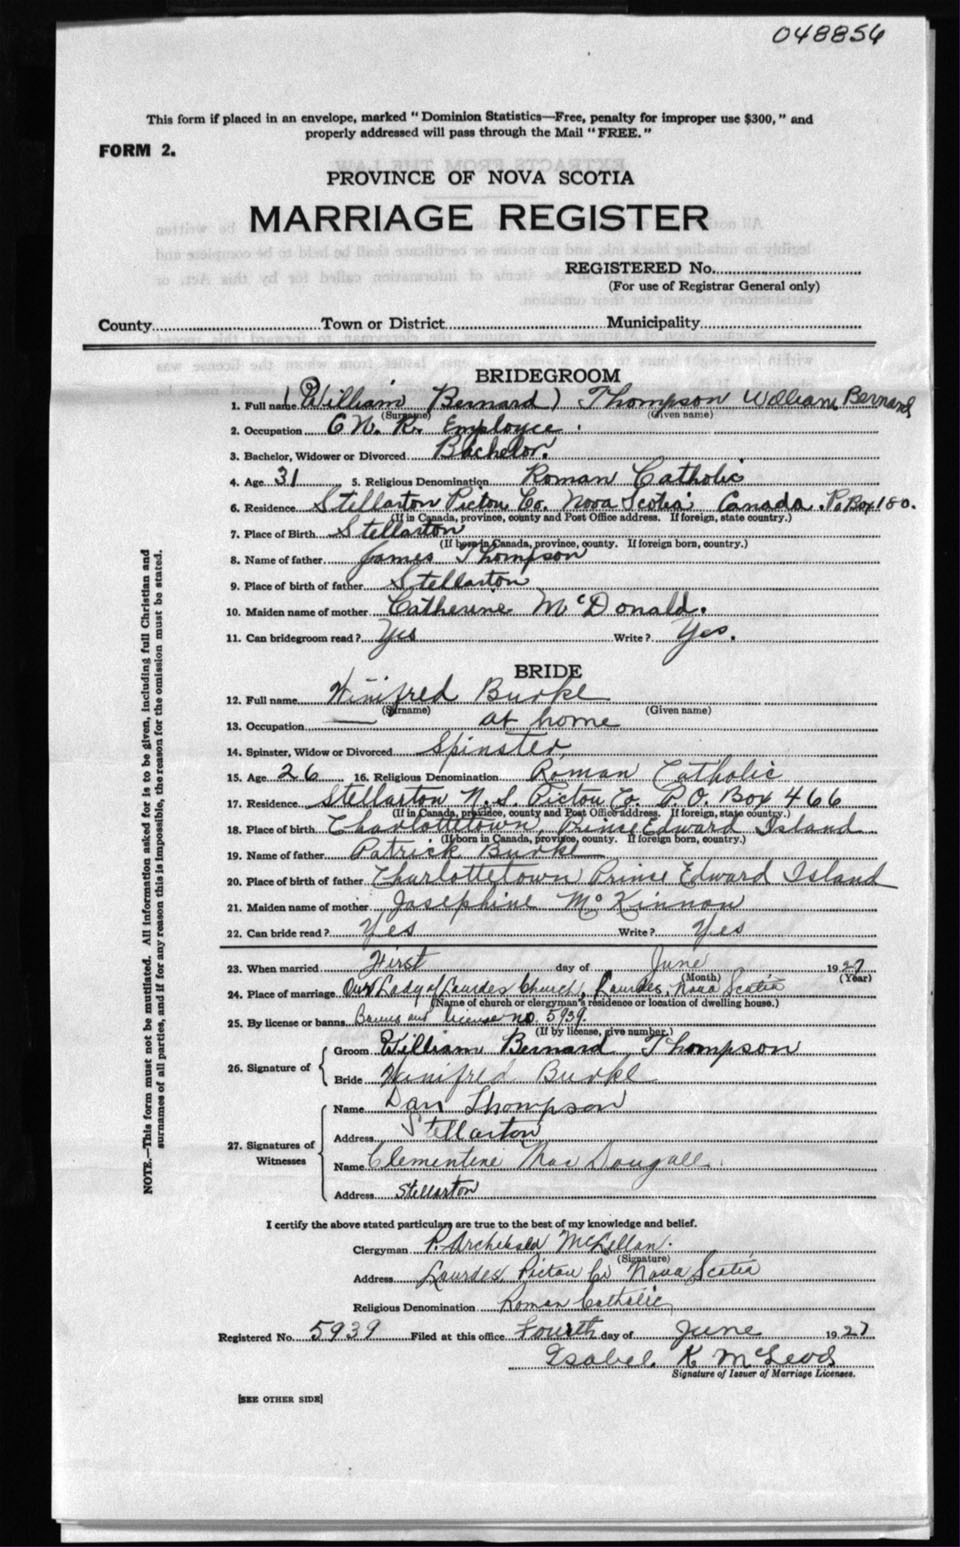 048856
This form if placed in an envelope, marked "Dominion Statistics—Free, penalty for improper use $300," and
properly addressed will pass through the Mail "FREE."
FORM 2.
PROVINCE OF NOVA SCOTIA
MARRIAGE REGISTER
REGISTERED No.
(For use of Registrar General only)
County Town or District Municipality
BRIDEGROOM
1. Full name (William Bernard) Thompson William Bernard
(Surname) (Given name)
2. Occupation C N. R. Employee.
3. Bachelor, Widower or Divorced Bachelor.
4. Age 31 5. Religious Denomination Roman Catholic
6. Residence Stellarton Pictou Co. Nova Scotia Canada. Po Box 180.
(If in Canada, province, county and Post Office address. If foreign, state country.)
7. Place of Birth Stellarton
(If born in Canada, province, county. If foreign born, country.)
8. Name of father James Thompson
9. Place of birth of father Stellarton
10. Maiden name of mother Catherine McDonald.
11. Can bridegroom read? Yes Write? Yes.
BRIDE
12. Full name Winifred Burke
(Surname) (Given name)
13. Occupation — at home
14. Spinster, Widow or Divorced Spinster
15. Age 26 16. Religious Denomination Roman Catholic
17. Residence Stellarton N. S. Pictou Co. P. O. Box 466
(If in Canada, province, county and Post Office address. If foreign, state country.)
18. Place of birth Charlottetown, Prince Edward Island
(If born in Canada, province, county. If foreign born, country.)
19. Name of father Patrick Burke
20. Place of birth of father Charlottetown Prince Edward Island
21. Maiden name of mother Josephine McKinnon
22. Can bride read? Yes Write? Yes
23. When married First day of June 1927
(Month) (Year)
24. Place of marriage Our Lady of Lourdes Church, Lourdes, Nova Scotia
(Name of church or clergyman's residence or location of dwelling house.)
25. By license or banns Banns and license no. 5939.
(If by license, give number.)
26. Signature of
Groom William Bernard Thompson
Bride Winifred Burke
27. Signatures of Witnesses
Name Dan Thompson
Address Stellarton
Name Clementine MacDougall
Address Stellarton
I certify the above stated particulars are true to the best of my knowledge and belief.
Clergyman P. Archibald McLellan.
(Signature)
Address Lourdes, Pictou Co Nova Scotia
Religious Denomination Roman Catholic
Registered No. 5939 Filed at this office Fourth day of June 1927
Isabel K McLeod
Signature of Issuer of Marriage Licenses.
[SEE OTHER SIDE]
NOTE.—This form must not be mutilated. All information asked for is to be given, including full Christian and
surnames of all parties, and if for any reason this is impossible, the reason for the omission must be stated.